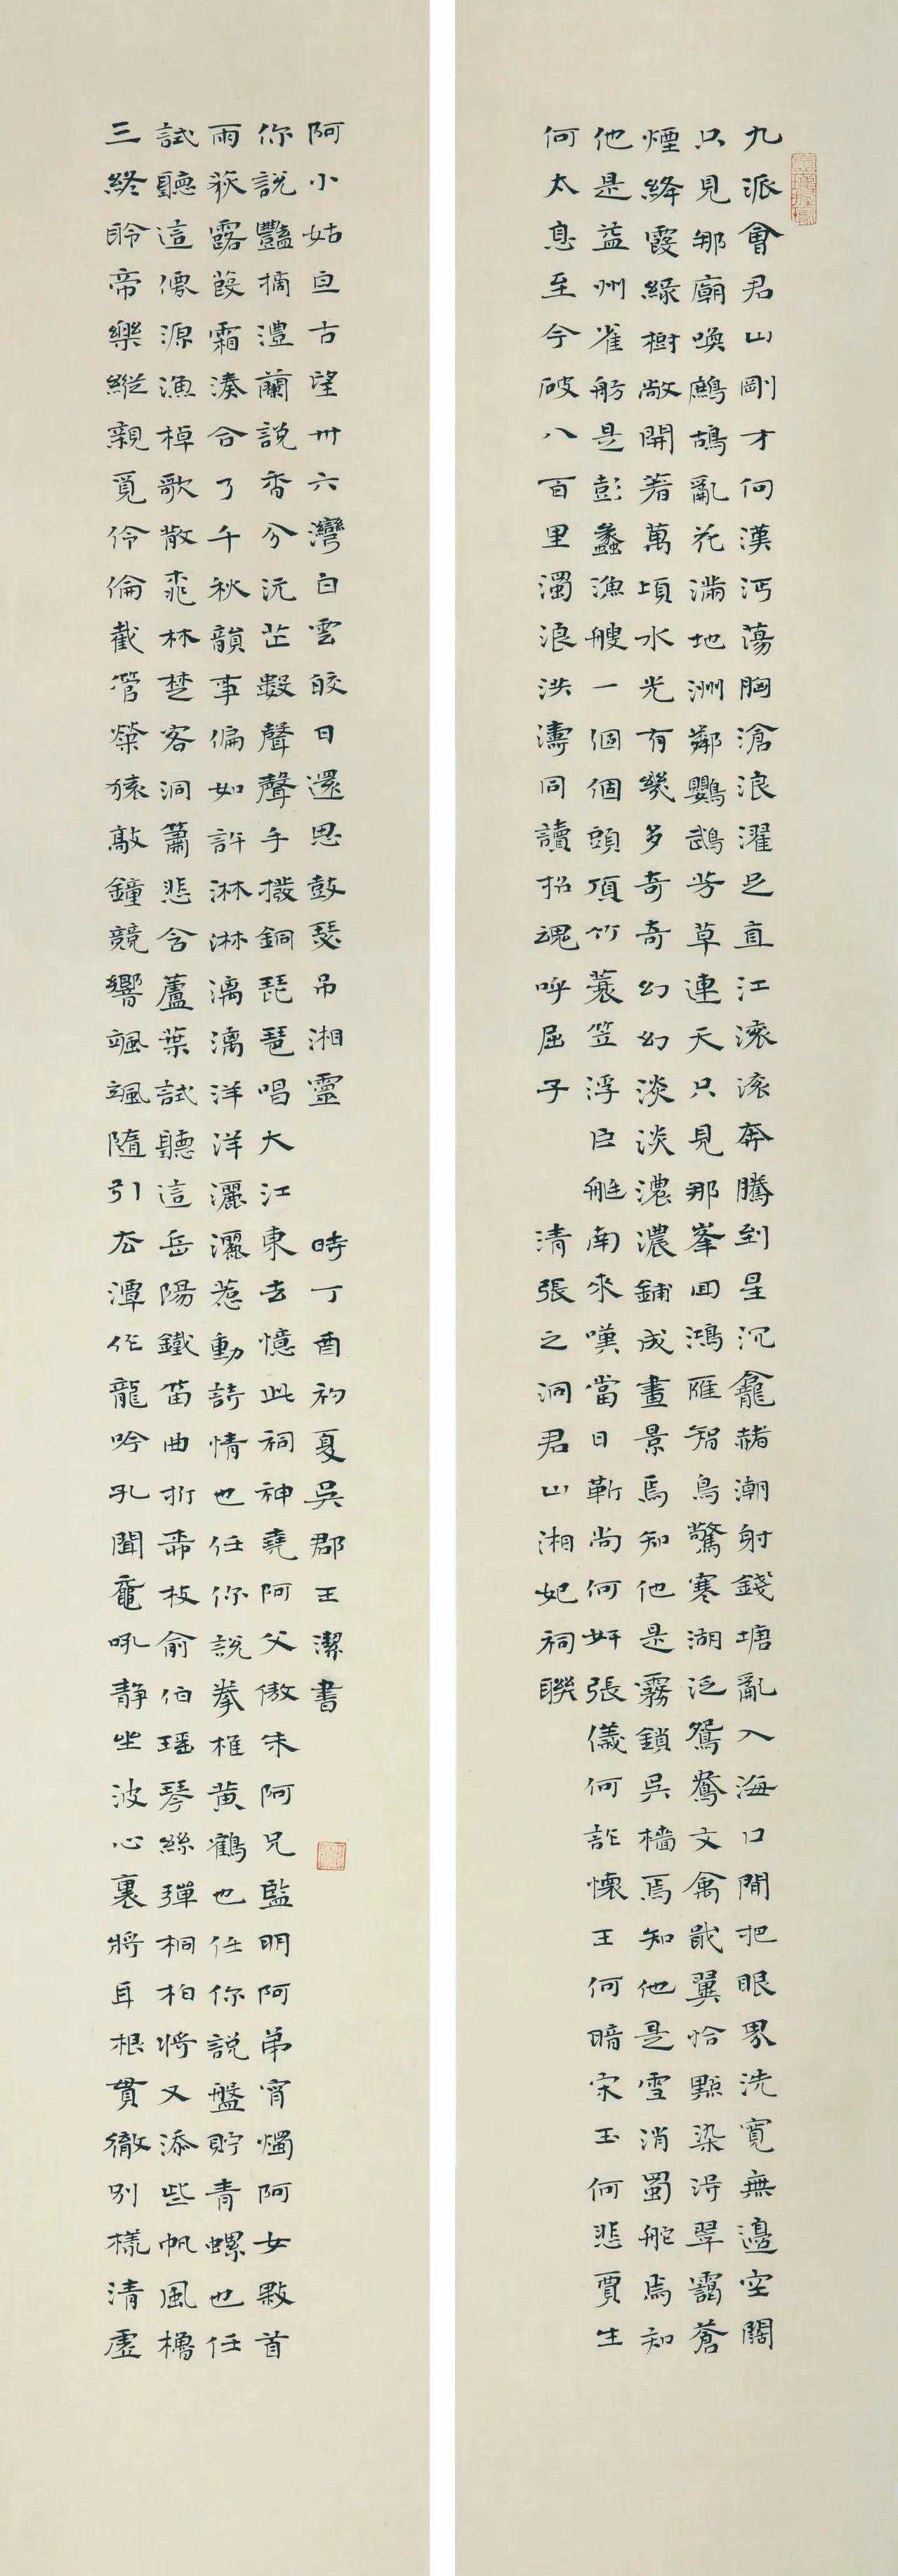 九派會君山剛才向漢沔蕩胸滄浪濯足直江滚滚奔騰到星沉龕赭潮射錢塘亂入海口間把眼界洗寬無邊空闊
只見那廟喚鷓鴣亂花滿地洲鄰鸚鵡芳草連天只見那峯回鴻雁智鳥驚寒湖泛鴛鴦文禽戢翼恰點染得翠靄蒼
煙絳霞綠樹敞開着萬頃水光有幾多奇奇幻幻淡淡濃濃鋪成畫景焉知他是霧鎖吳檣焉知他是雪消蜀舵焉知
他是益州雀舫是彭蠡漁艘一個個頭頂竹蓑笠浮巨艇南來嘆當日靳尚何奸張儀何詐懷王何暗宋玉何悲賈生
何太息至今破八百里濁浪洪濤同讀招魂呼屈子
清張之洞君山湘妃祠聯
三終聆帝樂縱親覓伶倫截管榮猿敲鐘競響颯颯隨引去潭作龍吟孔聞鼉吼静坐波心裏將耳根貫徹别樣清虛
試聽這僊源漁棹歌散桃林楚客洞簫悲含蘆葉試聽這岳陽鐵笛曲折柳枝俞伯瑶琴絲彈桐柏將又添些帆風櫓
雨荻露葭霜湊合了千秋韻事偏如許淋淋漓漓洋洋灑灑惹動詩情也任你說拳椎黄鶴也任你說盤貯青螺也任
你說豔摘澧蘭說香分沅芷數聲聲手撥銅琵琶唱大江東去憶此祠神堯阿父傲朱阿兄監明阿弟宵燭阿女敤首
阿小姑亘古望卅六灣白雲皎日還思鼓瑟吊湘靈
時丁酉初夏吳郡王潔書